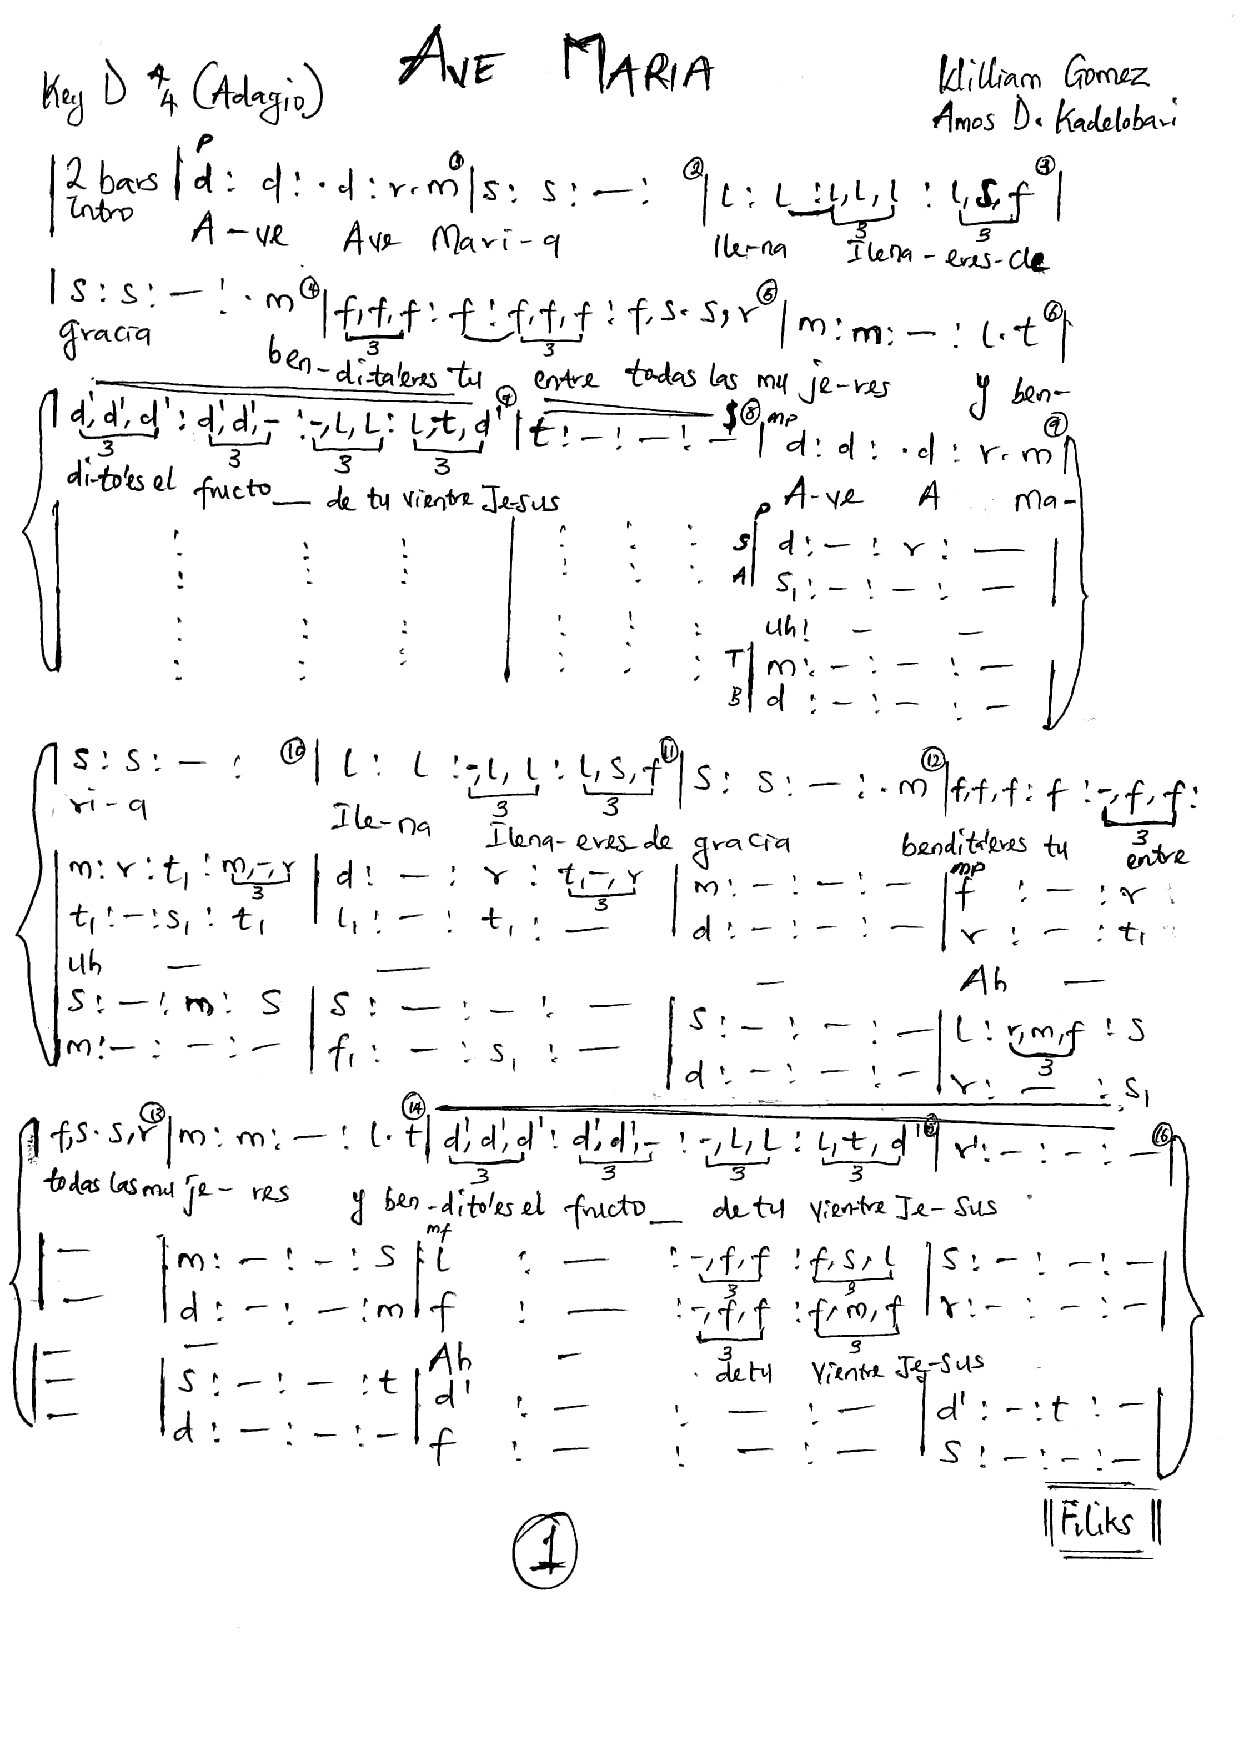 AVE MARIA
Key D 4/4 (Adagio)
William Gomez
Amos D. Kadelobari
p
|2 bars |d : d : . d : r . m ①|s : s : — : ②|l : l : l, l, l : l, s, f ③|
Intro
3 3
A-ve Ave Mari-a Ile-na Ilena-eres-de
|s : s : — : . m ④|f, f, f : f : f, f, f : f, s . s, r ⑤|m : m : — : l . t ⑥|
3 3
gracia ben-dita'eres tu entre todas las mu je-res y ben-
|d', d', d' : d', d', - : -, l, l : l, t, d' ⑦|t : - : - : - ⑧| mp d : d : . d : r . m ⑨|
3 3 3 3
di-to'es el fructo__ de tu vientre Je-sus A-ve A Ma-
p
S| d : — : r : —
A| s₁ : — : — : —
Uh! — —
T| m : — : — : —
B| d : — : — : —
|s : s : — : ⑩|l : l : -, l, l : l, s, f ⑪|s : s : — : . m ⑫|f, f, f : f : -, f, f :
3 3 3
ri-a Ile-na Ilena-eres-de gracia bendita'eres tu entre
mp
|m : r : t₁ : m, -, r |d : — : r : t₁, -, r |m : — : — : — |f : — : r
3 3
t₁ : — : s₁ : t₁ |l₁ : — : t₁ : — |d : — : — : — |r : — : t₁
Uh — — — Ah —
s : — : m : s |s : — : — : — |s : — : — : — |l : r, m, f : s
3
|m : — : — : — |f₁ : — : s₁ : — |d : — : — : — |r : — : s₁
f, s . s, r ⑬|m : m : — : l . t ⑭|d', d', d' : d', d', - : -, l, l : l, t, d' |r' : - : - : — ⑯|
3 3 3 3
todas las mu je-res y ben-dito'es el fructo__ de tu vientre Je-sus
mf
| — |m : — : — : s |l : — : -, f, f : f, s, l |s : — : — : —
3 3
— |d : — : — : m |f : — : -, f, f : f, m, f |r : — : — : —
3 3
— Ah — de tu vientre Je-sus
| — |s : — : — : t |d' : — : — : — |d' : — : t : —
— |d : — : — : — |f : — : — : — |s : — : — : —
||Filiks||
①